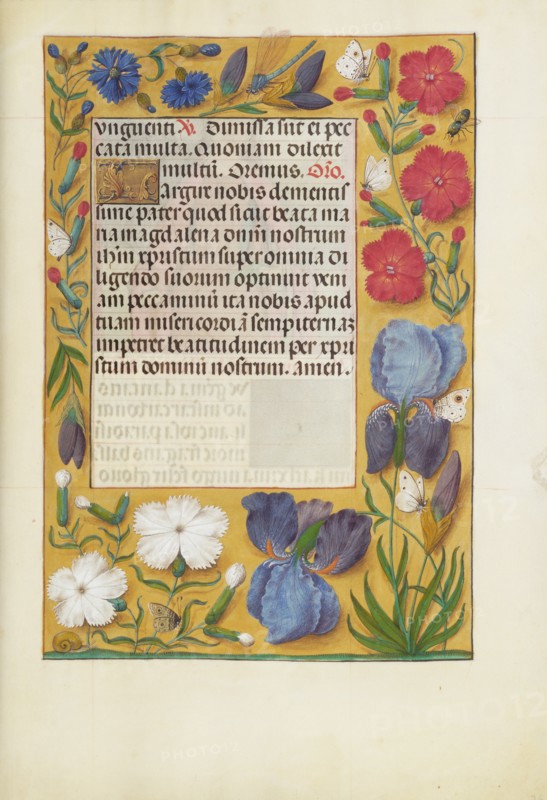 vnguenti R. Dimissa sūt ei pec
cata multa. Quoniam dilexit
multū. Oremus. Orō.
Largire nobis clementis
sime pater quod sicut beata ma
ria magdalena dnm̄ nostrum
ihm̄ xpristum super omnia di
ligendo suorum optinuit veni
am peccaminū ita nobis apud
tuam misericordiā sempiternaʒ
impetret beatitudinem per xpri
stum dominū nostrum. amen.
PHOTO12